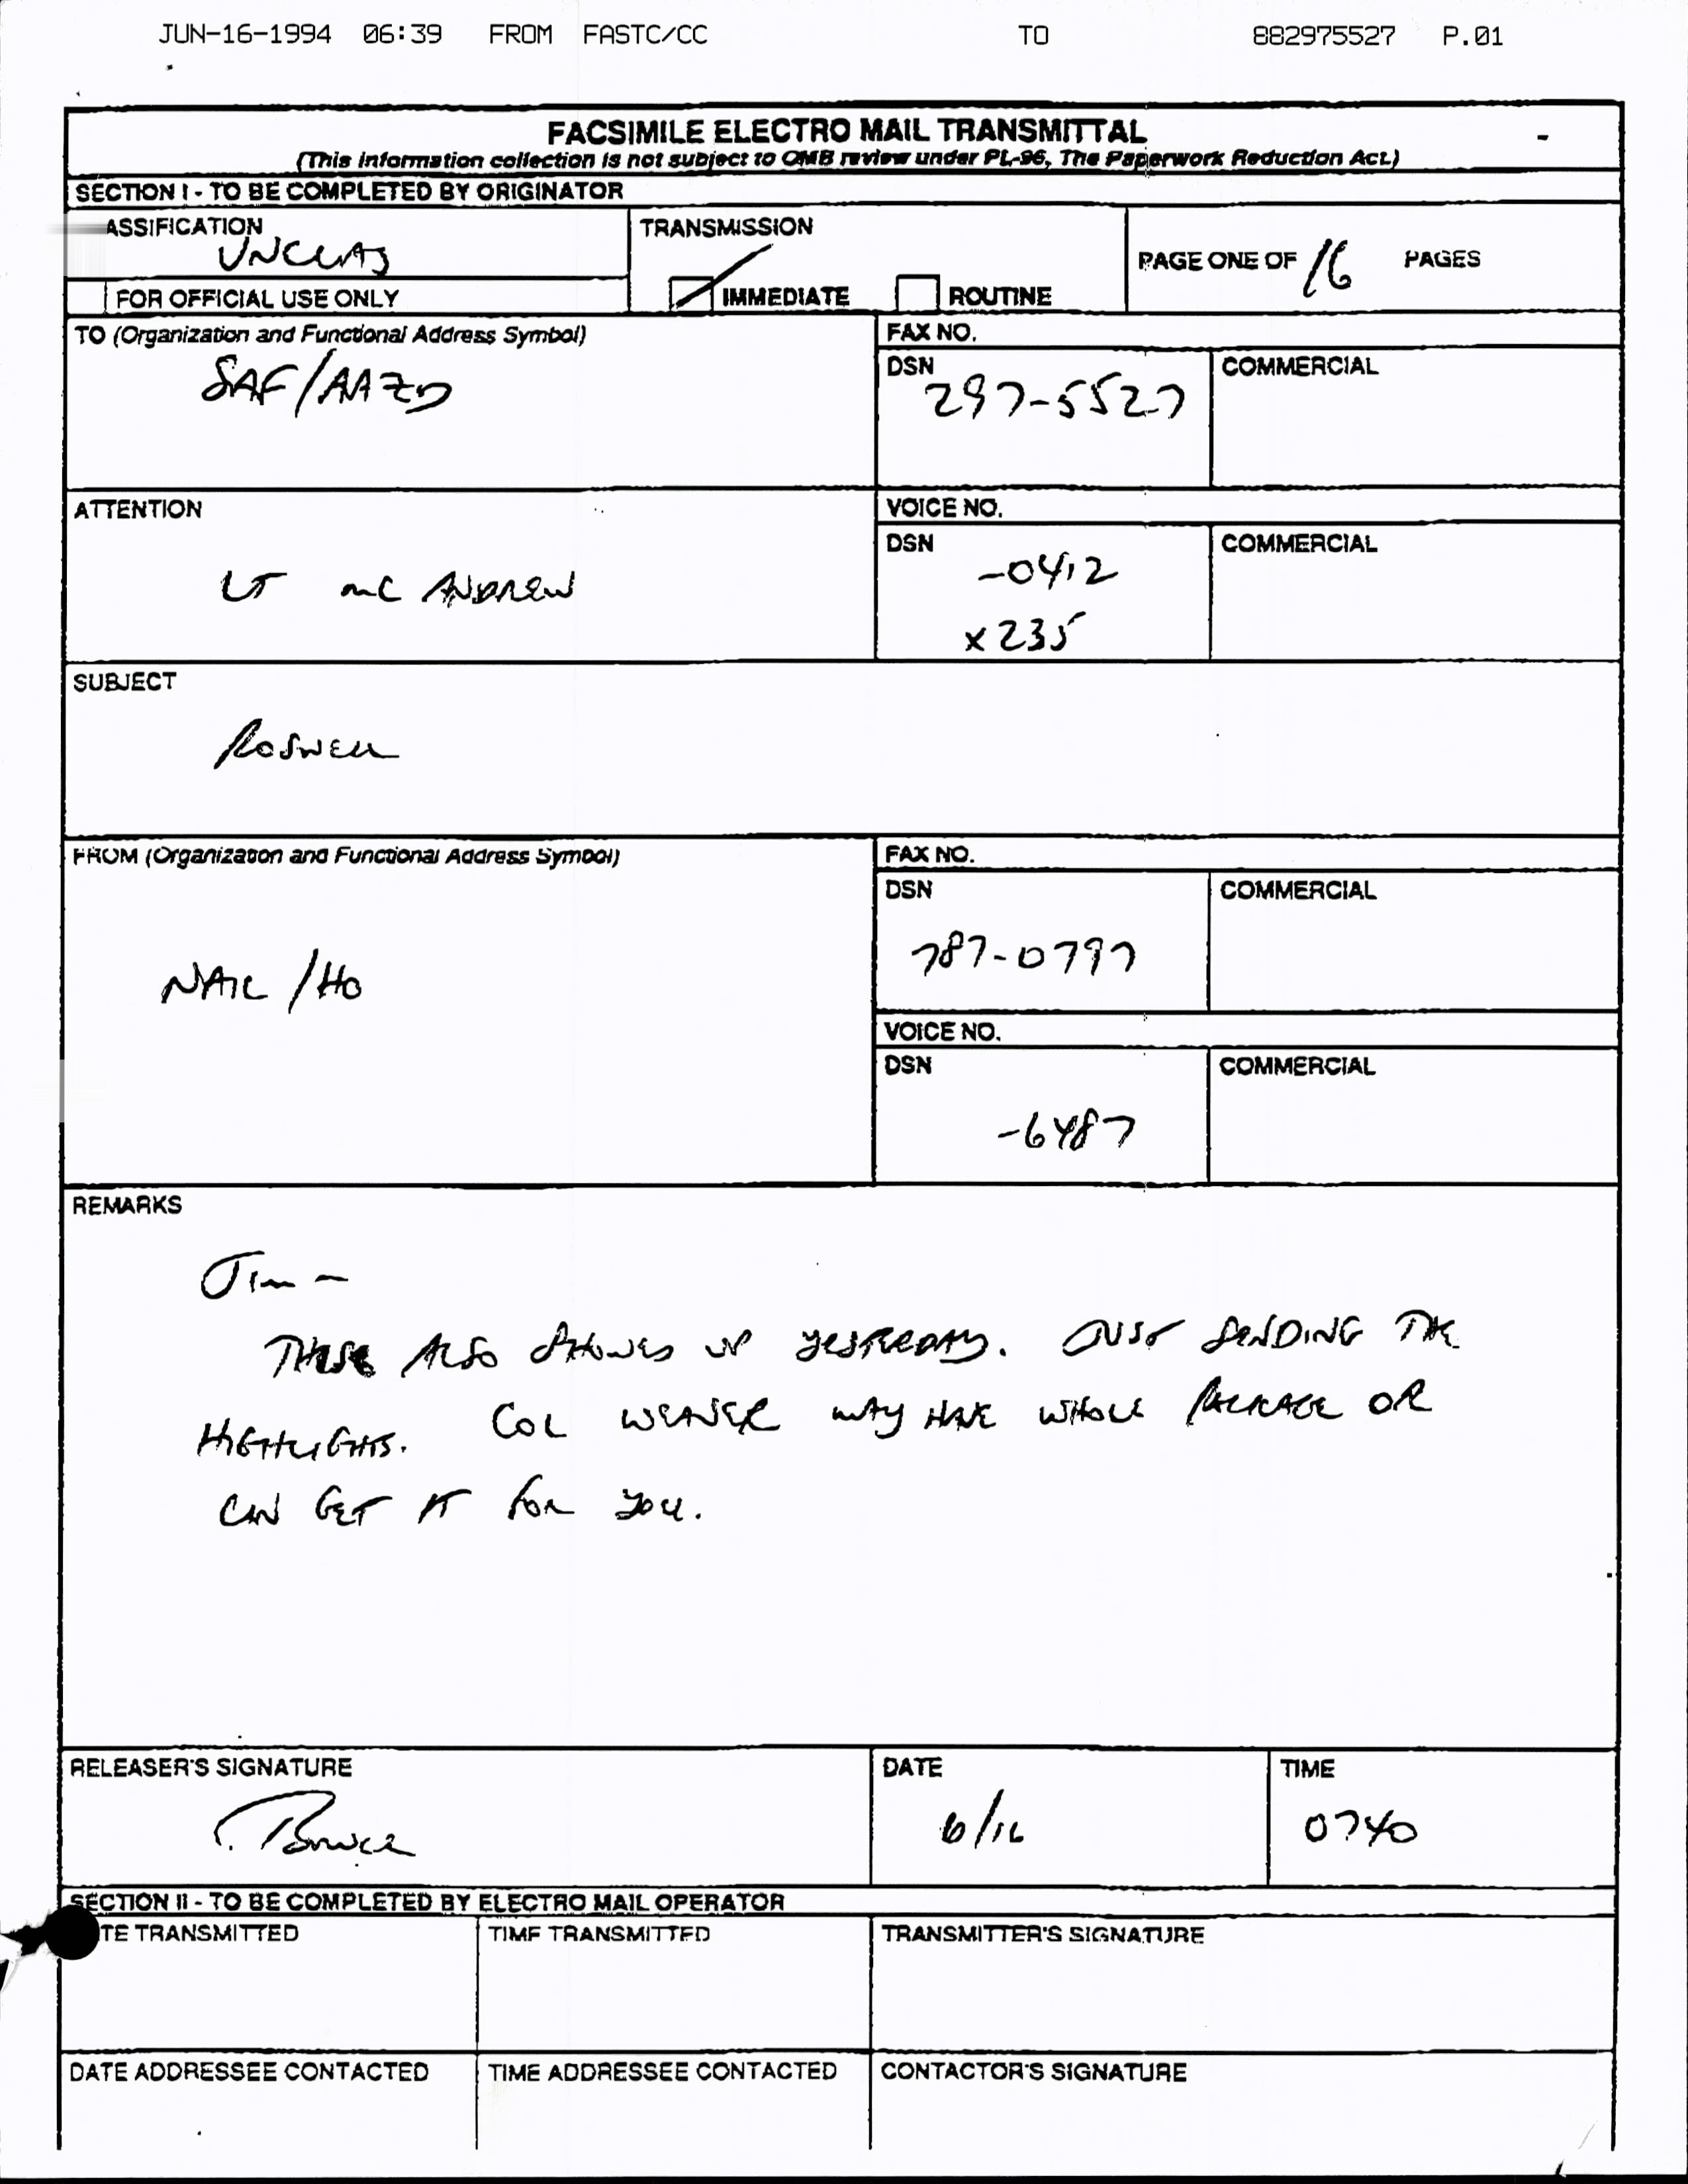 JUN-16-1994 06:39 FROM FASTC/CC TO 882975527 P.01
FACSIMILE ELECTRO MAIL TRANSMITTAL
(This information collection is not subject to OMB review under PL-96, The Paperwork Reduction Act.)
SECTION I - TO BE COMPLETED BY ORIGINATOR
ASSIFICATION
UNCLAS
FOR OFFICIAL USE ONLY
TRANSMISSION
IMMEDIATE ROUTINE
PAGE ONE OF 16 PAGES
TO (Organization and Functional Address Symbol)
SAF/AAZD
FAX NO.
DSN
297-5527
COMMERCIAL
ATTENTION
LT MC ANDREW
VOICE NO.
DSN
-0412
x235
COMMERCIAL
SUBJECT
ROSWELL
FROM (Organization and Functional Address Symbol)
NAIC/HO
FAX NO.
DSN
787-0797
COMMERCIAL
VOICE NO.
DSN
-6487
COMMERCIAL
REMARKS
JIM -
THESE ALSO SHOWED UP YESTERDAY. JUST SENDING THE
HIGHLIGHTS. COL WEAVER MAY HAVE WHOLE PACKAGE OR
CAN GET IT FOR YOU.
RELEASER'S SIGNATURE
Bruce
DATE
6/16
TIME
0740
SECTION II - TO BE COMPLETED BY ELECTRO MAIL OPERATOR
TE TRANSMITTED
TIME TRANSMITTED
TRANSMITTER'S SIGNATURE
DATE ADDRESSEE CONTACTED
TIME ADDRESSEE CONTACTED
CONTACTOR'S SIGNATURE